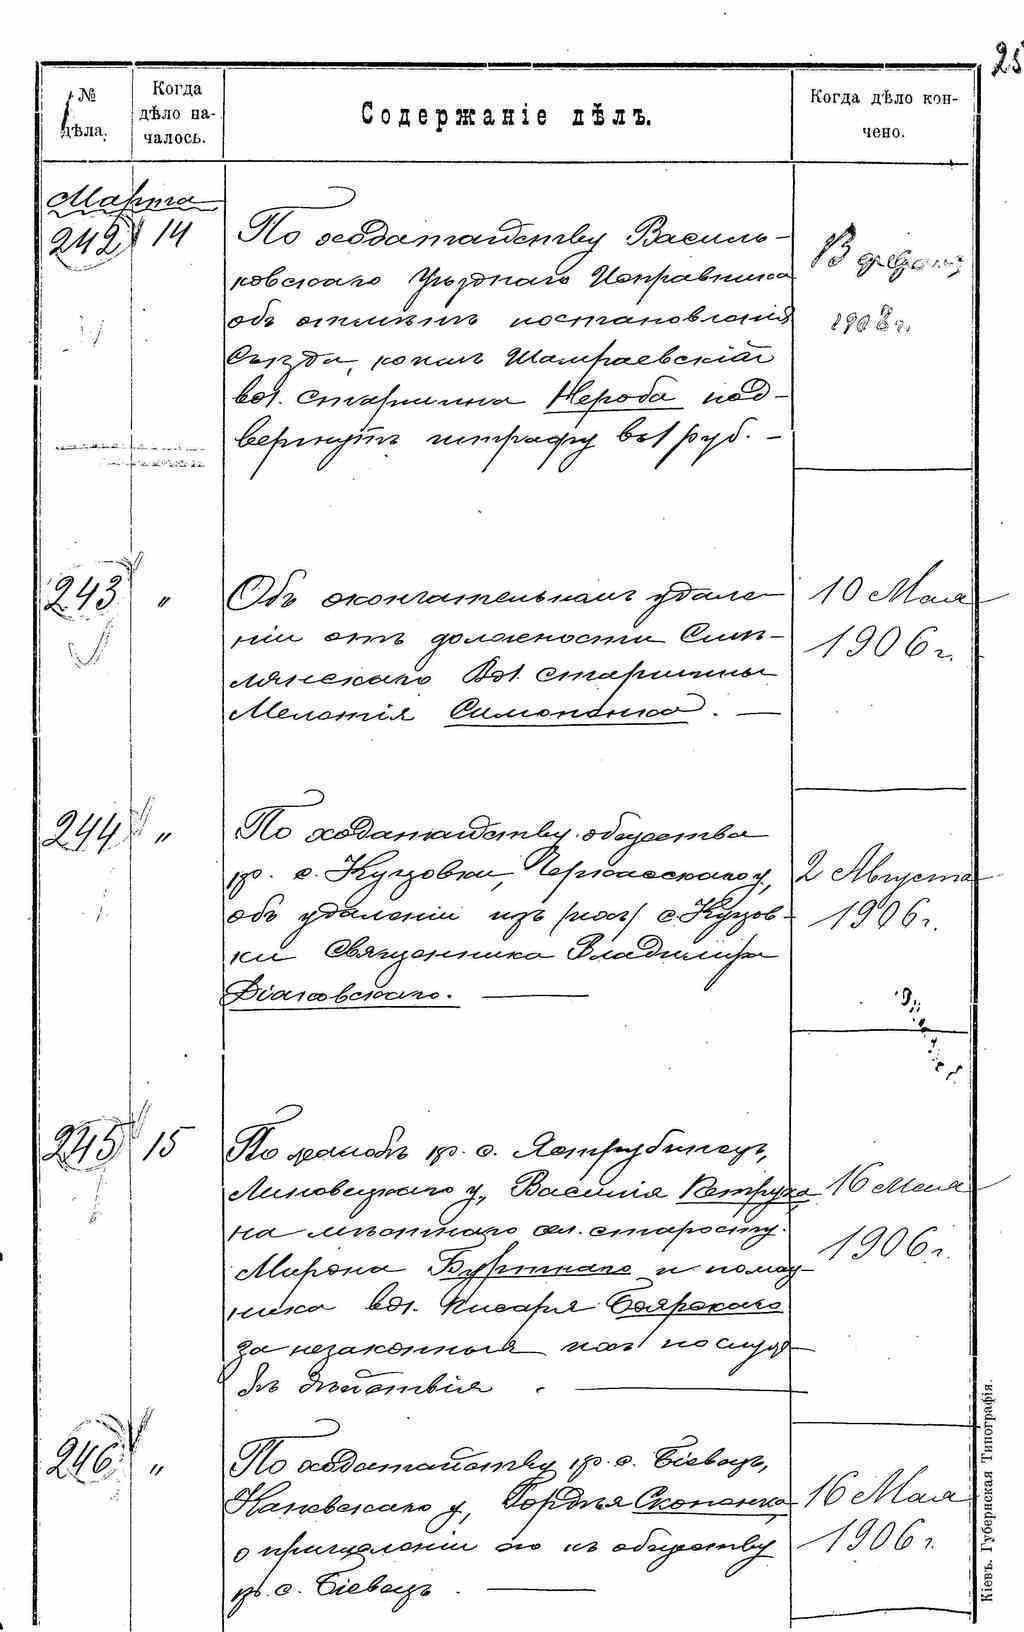 25
№ дѣла.
Когда дѣло началось.
Содержаніе дѣлъ.
Когда дѣло кончено.
Марта
242 14
По ходатайству Василь-
ковскаго Уѣзднаго Исправника
объ отмѣнѣ постановленія
Съѣзда, коимъ Шамраевскій
вол. старшина Нероба под-
вергнутъ штрафу въ 1 руб. -
1908 г.
243 "
Объ окончательномъ удале
ніи отъ должности
Вол. старшины
Мелетія Симоненка. —
10 Мая
1906 г.
244 "
По ходатайству общества
кр. с. Куцовки, Черкасскаго у,
объ удаленіи изъ с. Куцов-
ки Священника Владиміра
—
2 Августа
1906 г.
245 15
По жалобѣ кр. с. Яструбинецъ,
Липовецкаго у., Василія Петрука
на мѣстнаго сел. старосту
Мирона и помощ-
ника вол. писаря Боярскаго
за незаконныя по служ-
бѣ дѣйствія. —
16 Мая
1906 г.
246 "
По ходатайству кр. с. Біевецъ,
Каневскаго у, Гордѣя Скопенка
о причисленіи его къ обществу
кр. с. Біевецъ. —
16 Мая
1906 г.
Кіевъ. Губернская Типографія.